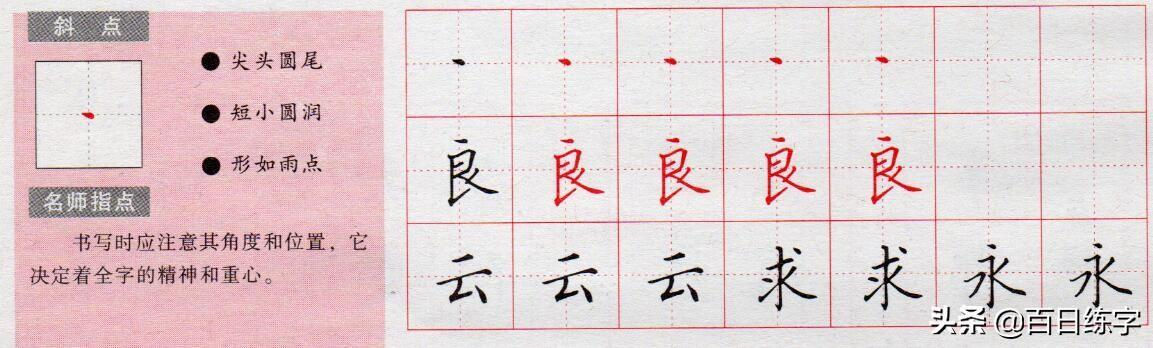 斜 点
尖头圆尾
短小圆润
形如雨点
名师指点
书写时应注意其角度和位置，它
决定着全字的精神和重心。
良 良 良 良 良
云 云 云 求 求 永 永
头条 @百日练字